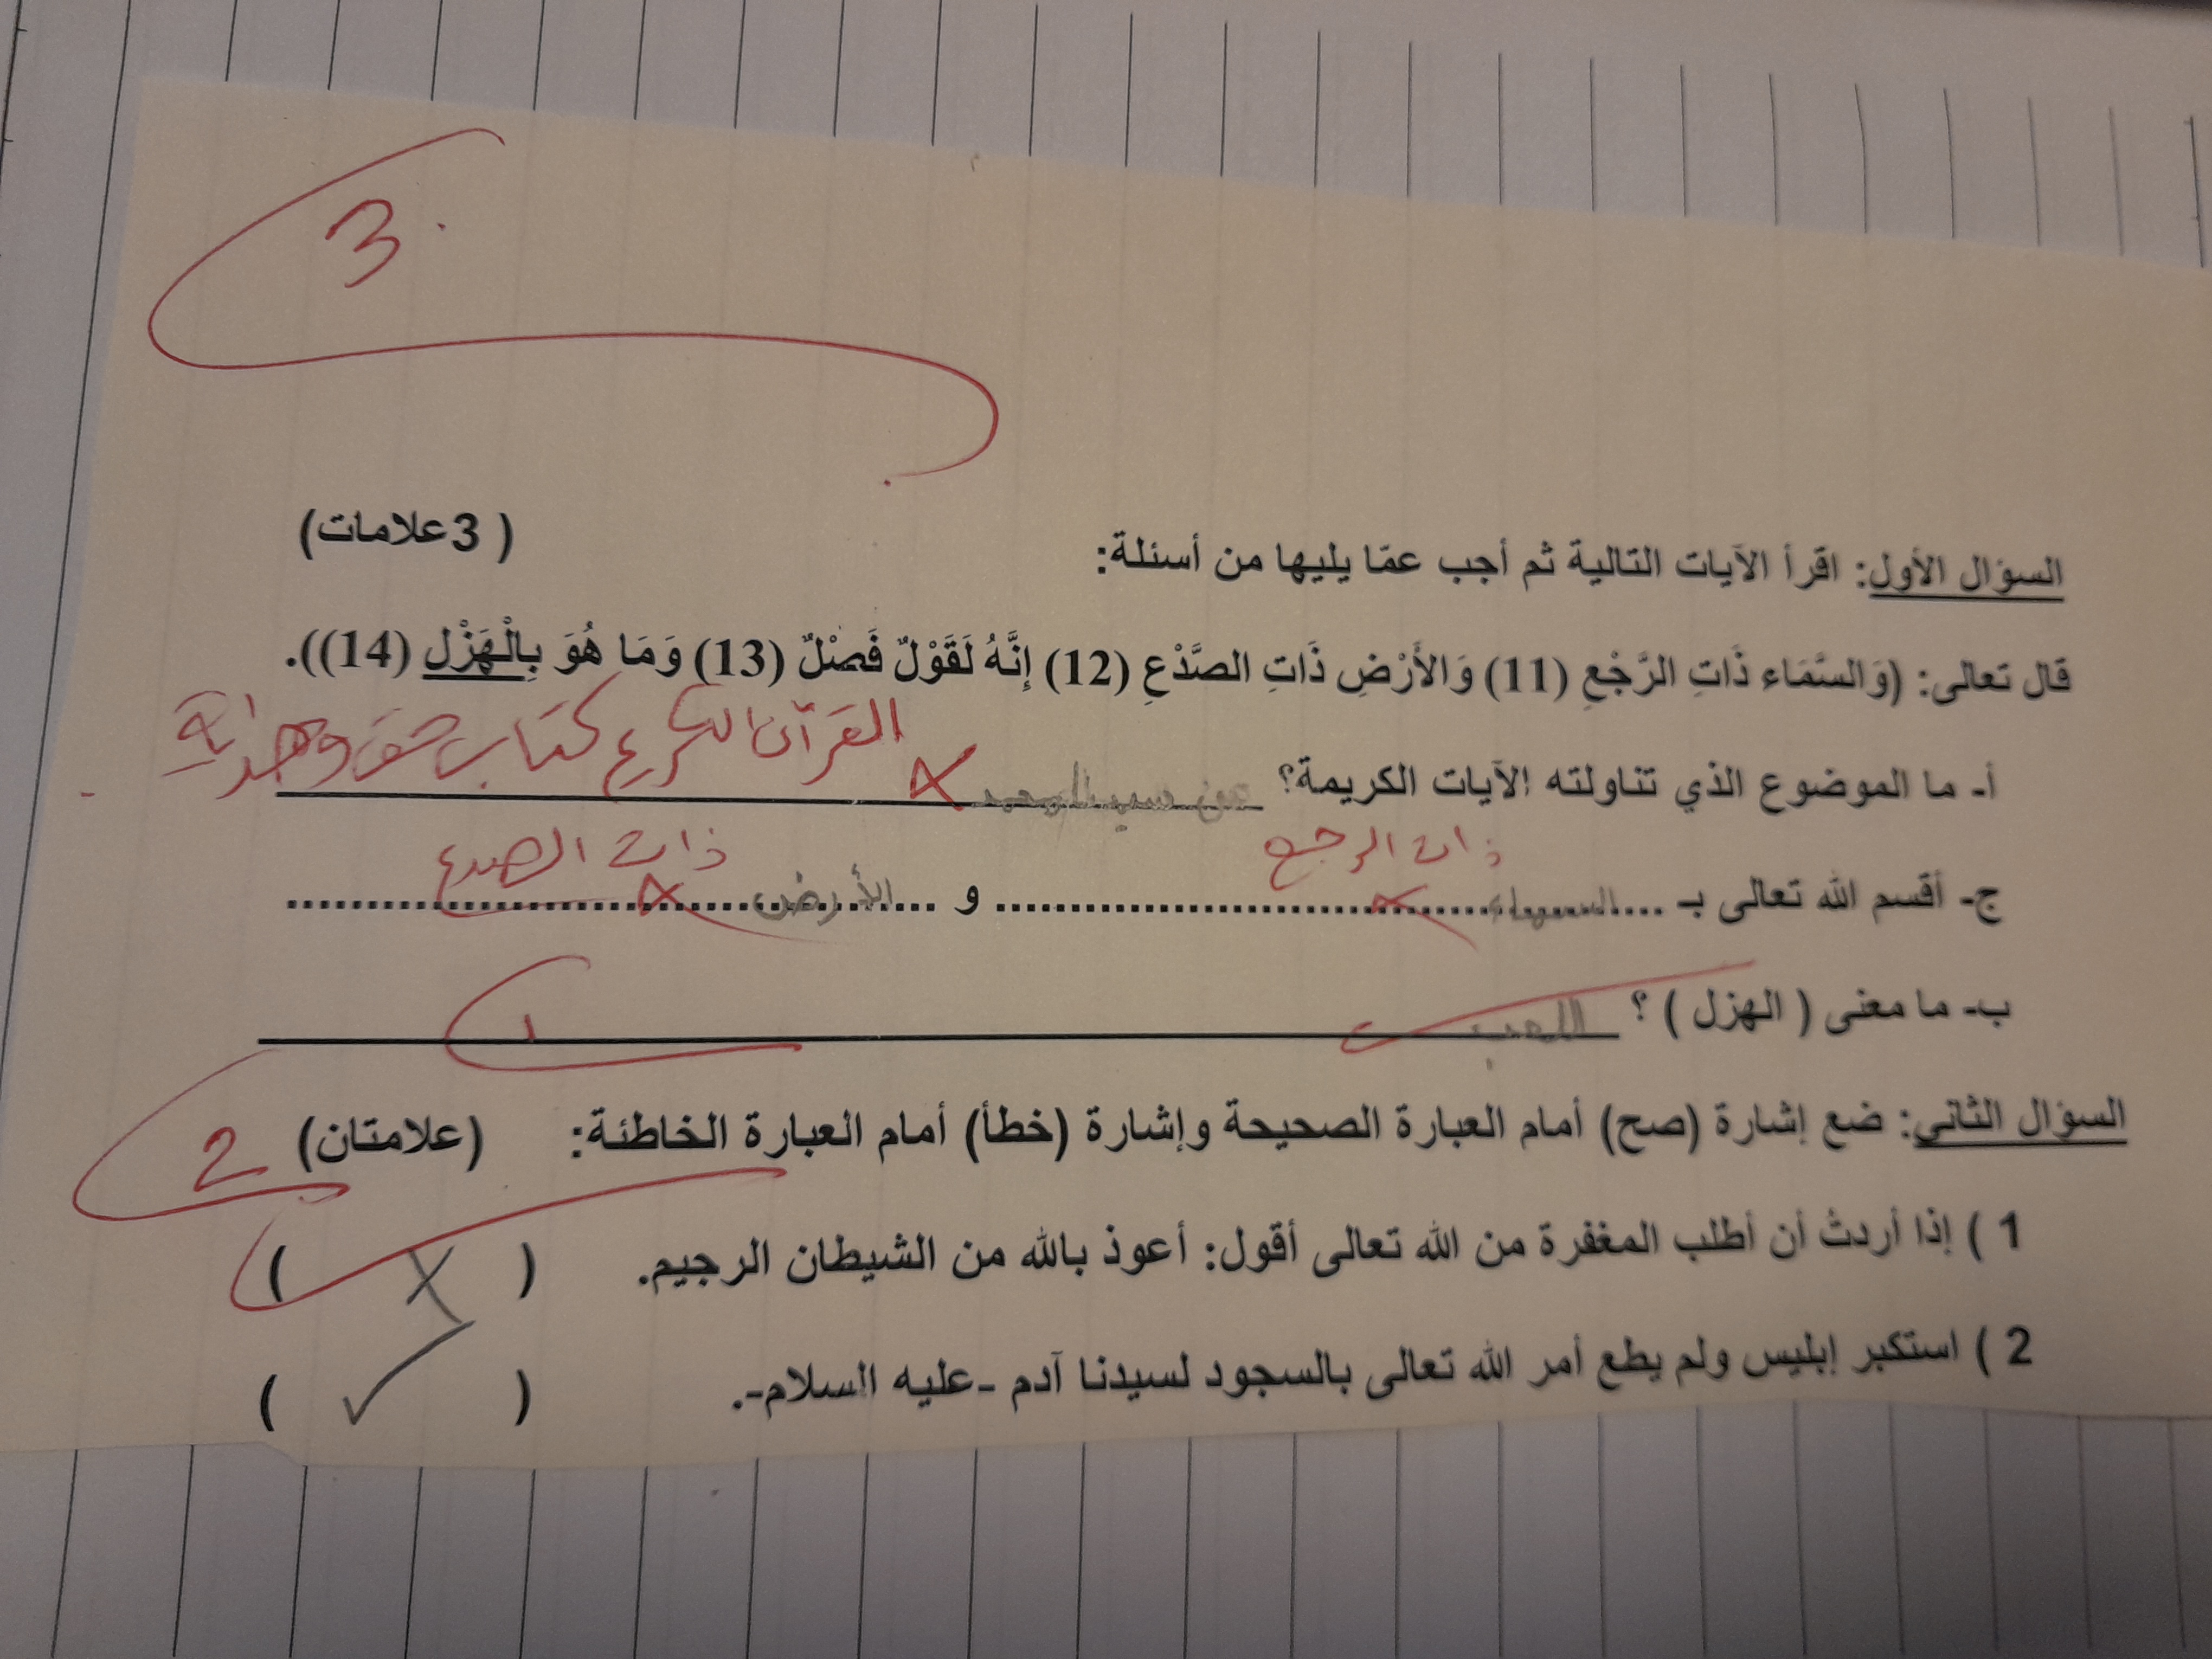 3
السؤال الأول: اقرأ الآيات التالية ثم أجب عمّا يليها من أسئلة: ( 3 علامات)
قال تعالى: (وَالسَّمَاء ذَاتِ الرَّجْعِ (11) وَالأَرْضِ ذَاتِ الصَّدْعِ (12) إِنَّهُ لَقَوْلٌ فَصْلٌ (13) وَمَا هُوَ بِالْهَزْلِ (14)).
القرآن الكريم كتاب حق وهداية
أ- ما الموضوع الذي تناولته الآيات الكريمة؟
ذات الرجع ذات الصدع
ج- أقسم الله تعالى بـ ....السماء.... و ....الأرض....
ب- ما معنى ( الهزل ) ؟ اللعب 1
السؤال الثاني: ضع إشارة (صح) أمام العبارة الصحيحة وإشارة (خطأ) أمام العبارة الخاطئة: (علامتان) 2
1 ) إذا أردتُ أن أطلب المغفرة من الله تعالى أقول: أعوذ بالله من الشيطان الرجيم. ( X )
2 ) استكبر إبليس ولم يطع أمر الله تعالى بالسجود لسيدنا آدم -عليه السلام-. ( ✓ )